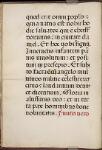 quod erit omni populo
quia natus est nobis ho
die saluator qui est
dominus in ciuitate da
uid Et hoc uobis signu
Inuenietis infantem pa
nis inuolutum et posi
tum in presepio Et subi
to facta est cum angelo
multitudo
laudantium deum
et dicentium Gloria in
altissimis deo et in ter
ra pax hominibus bone
uoluntatis